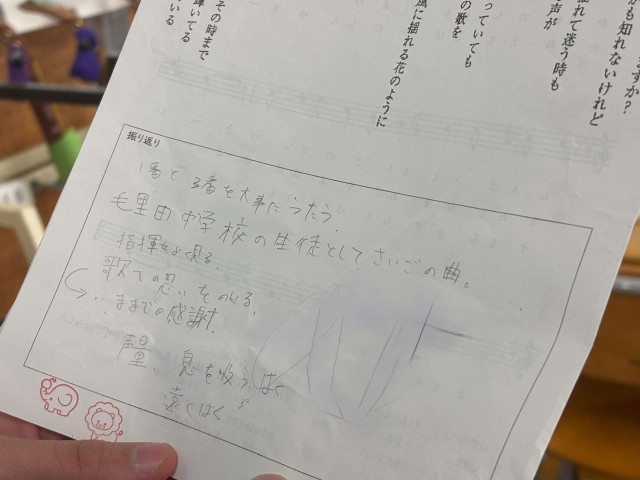 ますか?
かも知れないけれど
揺れて迷う時も
声が
っていても
の歌を
風に揺れる花のように
その時まで
輝いてる
いる
振り返り
1番と3番を大事にうたう.
毛里田中学校の生徒として、さいごの曲。
指揮をよく見る.
歌への思いをのせる,
ままでの感謝.
声量. 息を吸う はく
遠くはく